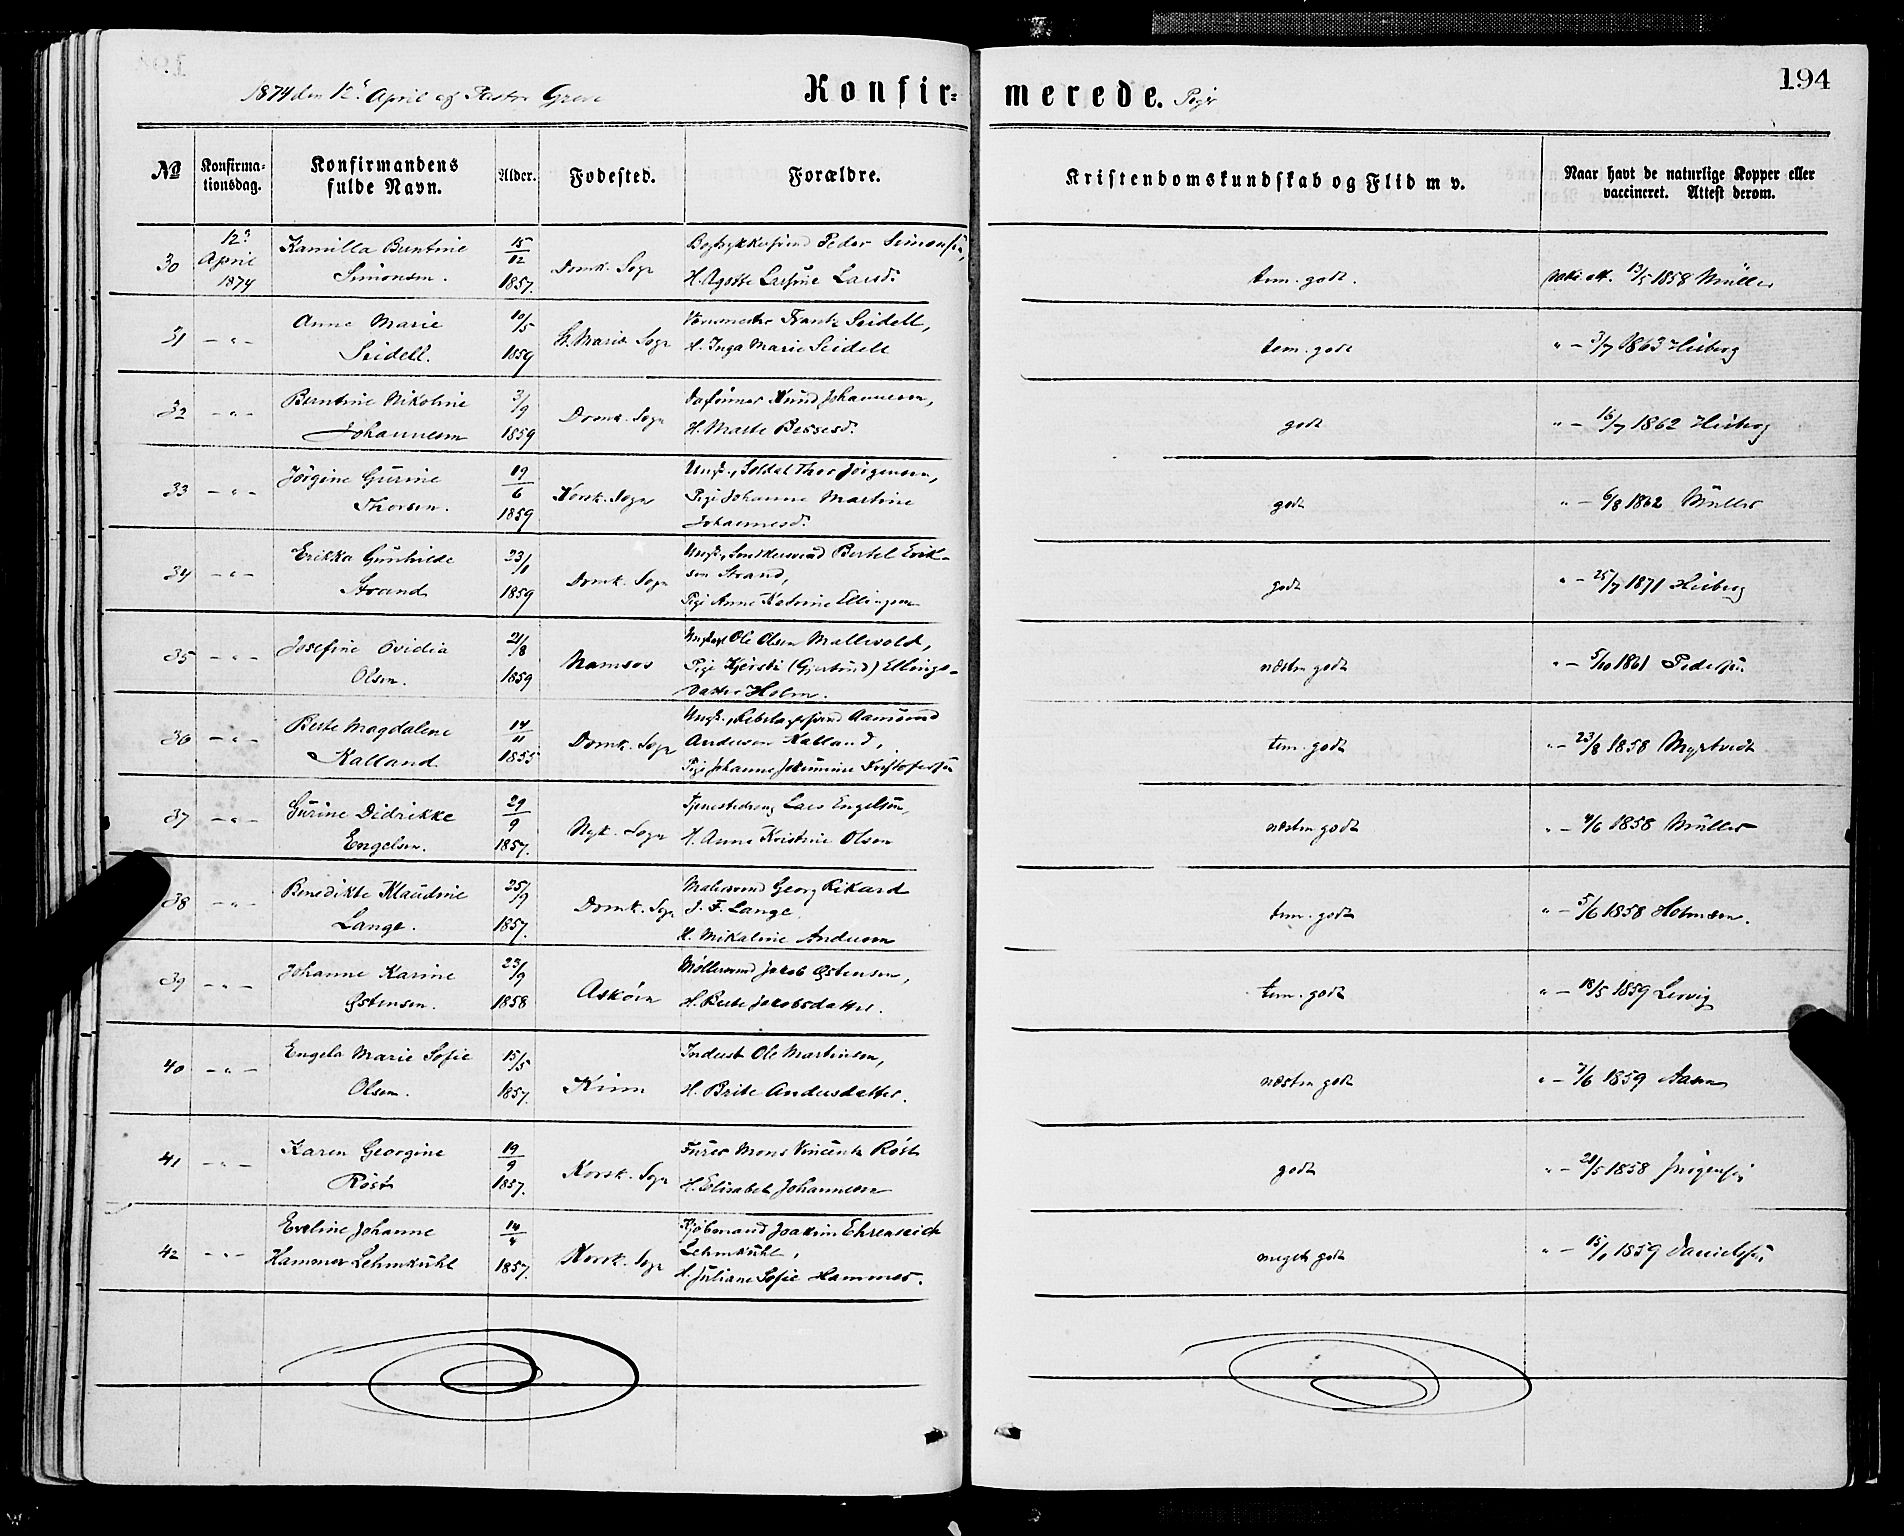 194
1874 den 12te April af Pastor Greve
Konfir- merede. Piger
No
Konfirma-
tionsdag.
Konfirmandens
fulde Navn.
Alder.
Fødested.
Forældre.
Kristendomskundskab og Flid m v.
Naar havt de naturlige Kopper eller
vaccineret. Attest derom.
30 12te April 1874 Kamilla Buntine
Simonsen. 15/12 1857. Domk. Sogn Peder Simonsen,
H. Agathe Larsine Larsd. tem. godt. 13/5 1858 Müller
31 - " - Anne Marie
Seidell. 10/5 1859 St. Mariæ Sogn Frantz Seidell,
H. Inga Marie Seidell tem. godt " - 3/7 1863 Heiberg
32 - " - Berntine Nikoline
Johannesen 3/9 1859 Domk. Sogn Knud Johannesen,
H. Marte Bessesd. godt " - 16/7 1862 Heiberg
33 - " - Jörgine Gurine
Thorsen. 19/6 1859 Korsk. Sogn Ungk., Soldat Thor Jörgensen,
Pige Johanne Martine
Johannesd. godt " - 6/8 1862 Müller
34 - " - Erikka Gunhilde
Strand 23/1 1859 Domk. Sogn Ungk., Snedkersvend Bertel Erik-
sen Strand,
Pige Anne Katrine Ellingsen godt " - 25/7 1871 Heiberg
35 - " - Josefine Ovidia
Olsen. 21/8 1859 Namsos Ungkarl Ole Olsen Mallevold,
Pige Kjersti (Gjertrud) Ellings-
datter Holm. næsten godt " - 5/10 1861 Pedersen
36 - " - Berte Magdalene
Kalland 14/11 1855 Domk. Sogn Ungk., Aamund
Andersen Kalland,
Pige Johanne Kristofersen tem. godt " - 23/8 1858 Myrtvedt
37 - " - Gurine Didrikke
Engelsen. 29/9 1857. Nyk. Sogn Tjenestedreng Lars Engelsen,
H. Anne Kristine Olsen næsten godt " - 4/6 1858 Müller
38 - " - Benedikte Klaudine
Lange. 25/9 1857. Domk. Sogn Malersvend Georg Rikard
J. F. Lange,
H. Mikaline Andersen tem. godt " - 5/6 1858 Holmsen.
39 - " - Johanne Karine
Østensen. 23/9 1858 Asköen Møllersvend Jakob Østensen,
H. Berte Jakobsdatter. tem. godt " - 18/5 1859 Lervig
40 - " - Engela Marie Sofie
Olsen. 15/5 1857. Kinn Inderst Ole Martinsen,
H. Brite Andersdatter. næsten godt " - 7/6 1859 Aasen
41 - " - Karen Georgine
Röst 19/9 1857. Korsk. Sogn Furer Mons Vincentz Röst
H. Elisabet Johannesen godt " - 28/5 1858 Jörgensen
42 - " - Eveline Johanne
Hammer Lehmkuhl 14/4 1857. Korsk. Sogn Kjöbmand Joakim Ehrenreich
Lehmkuhl,
H. Juliane Sofie Hammer. meget godt " - 15/1 1859 Danielsen